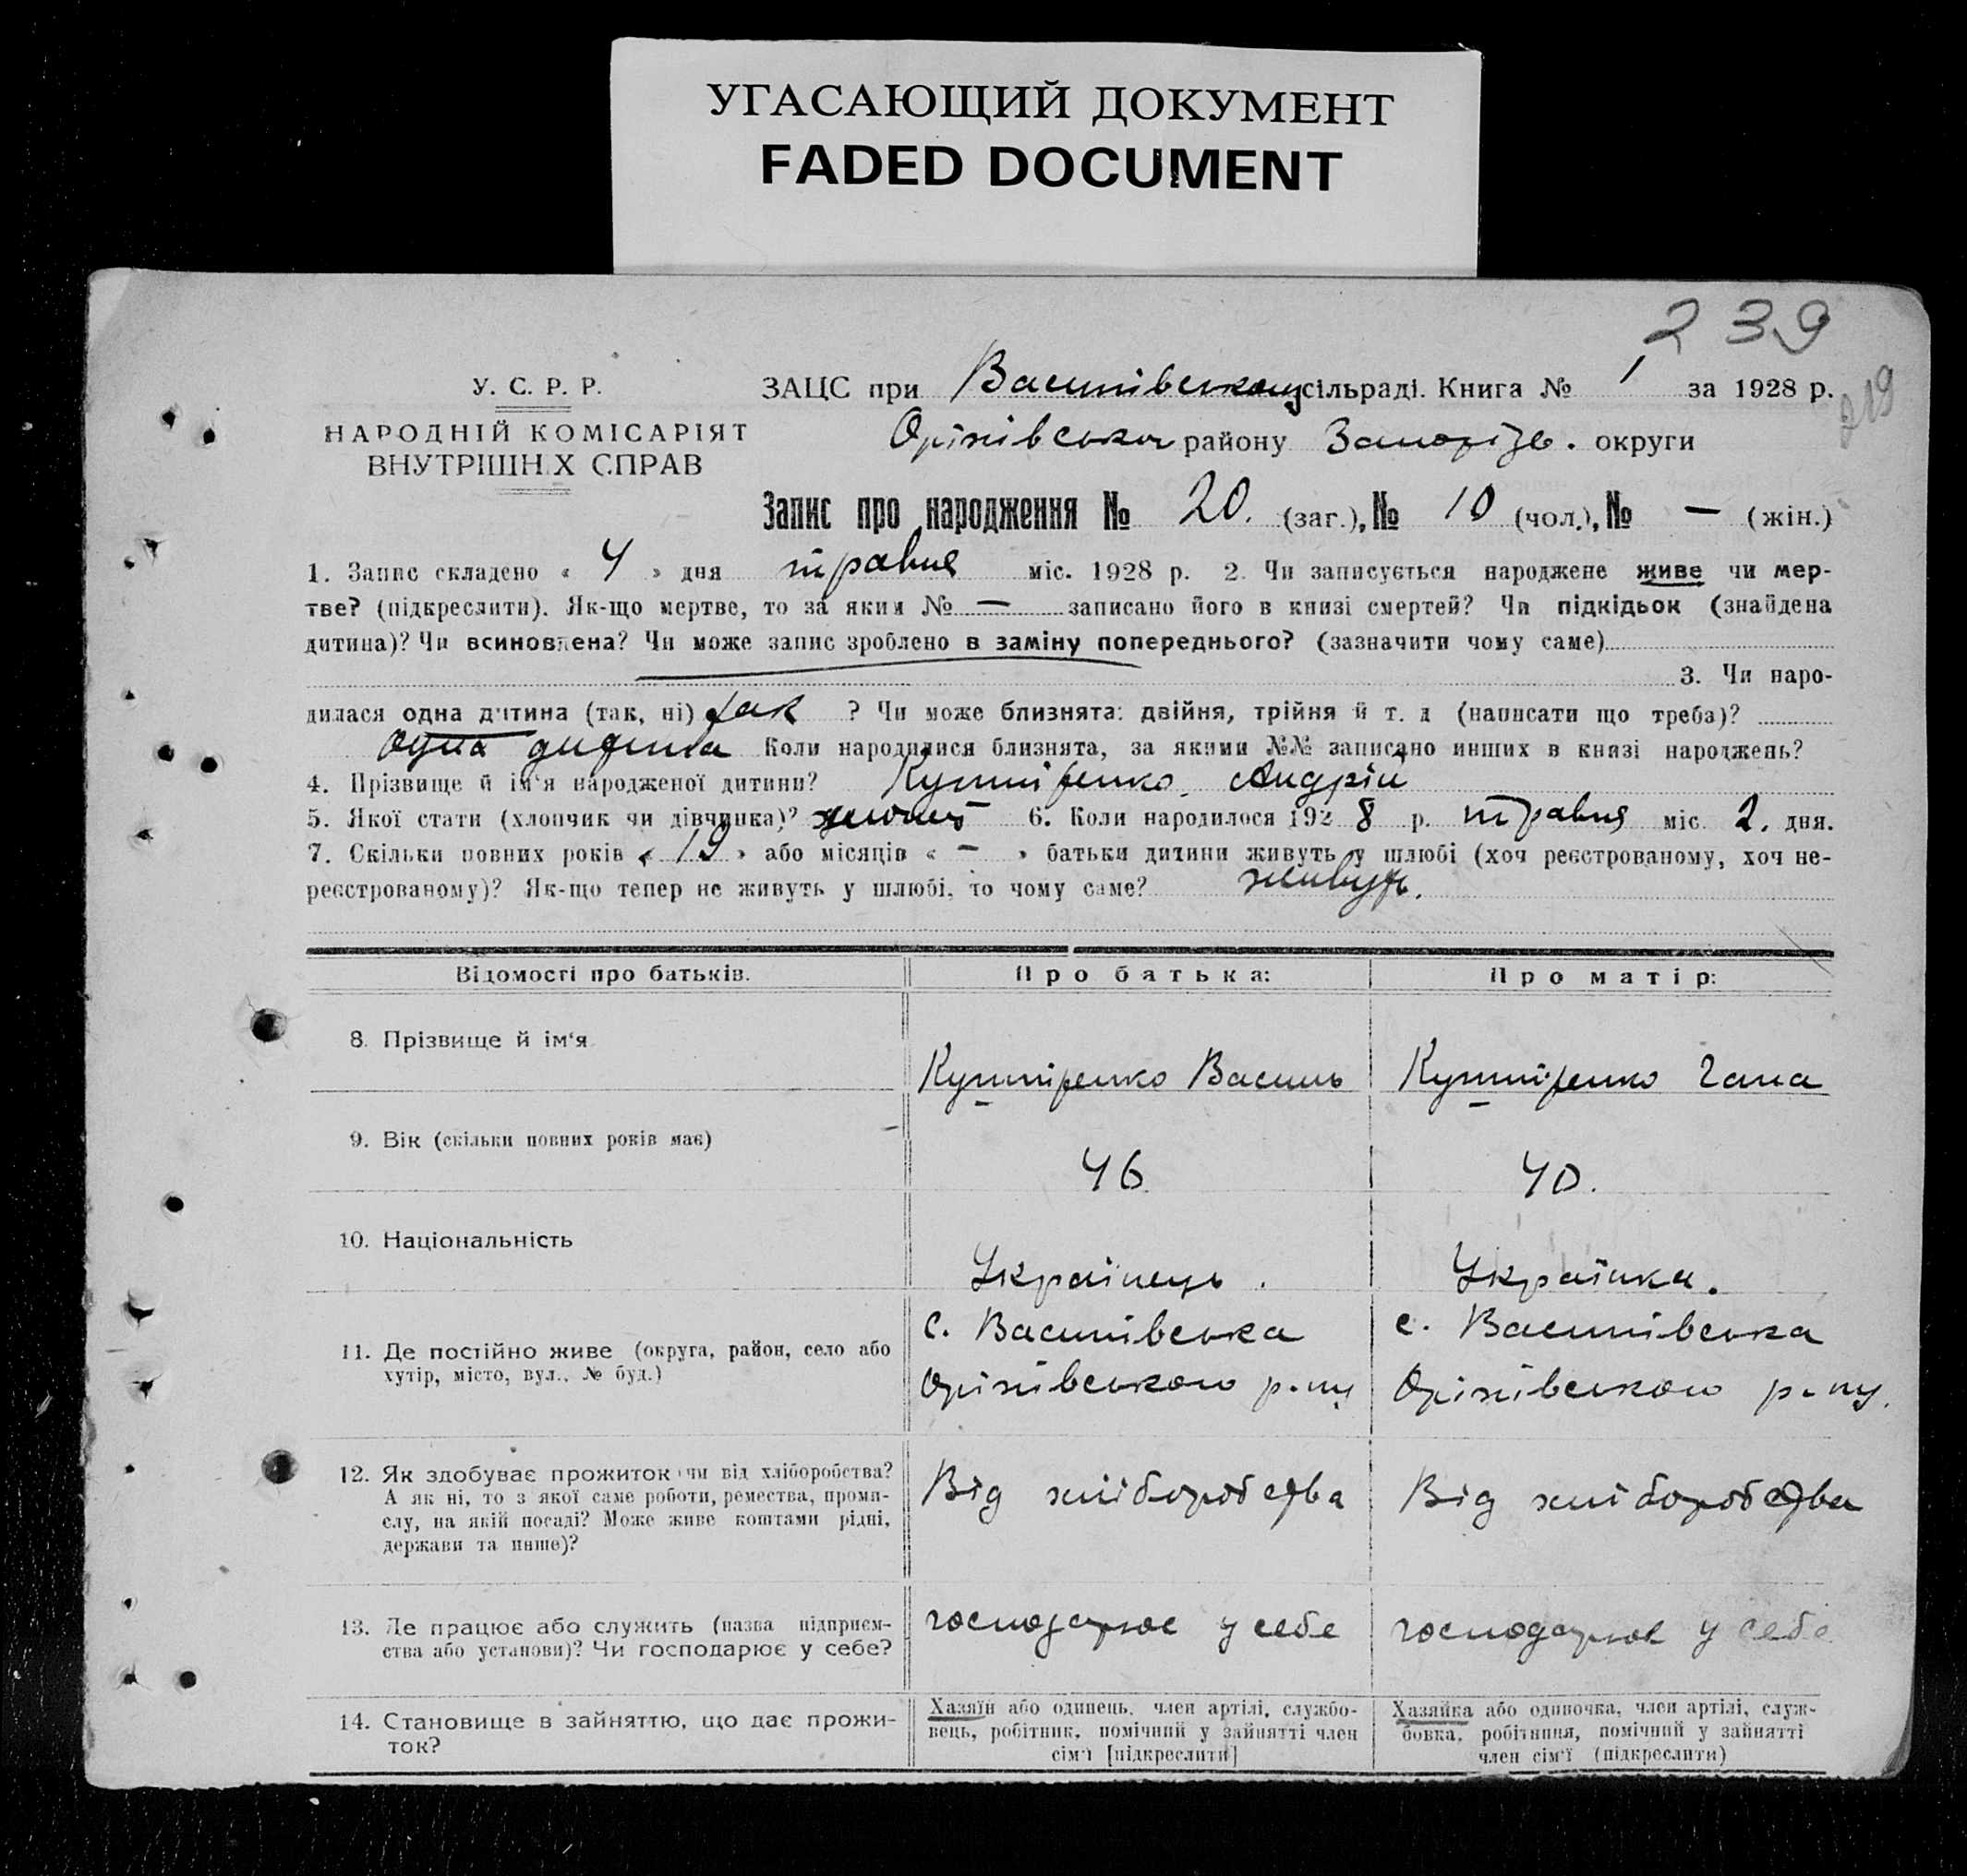 УГАСАЮЩИЙ ДОКУМЕНТ
FADED DOCUMENT
239
219
У. С. Р. Р.
НАРОДНІЙ КОМІСАРІЯТ
ВНУТРІШНІХ СПРАВ
ЗАЦС при Василівському сільраді. Книга № 1 за 1928 р.
Оріхівського району Запоріз. округи
Запис про народження № 20. (заг.), № 10 (чол.), № — (жін.)
1. Запис складено « 4 » дня травня міс. 1928 р. 2. Чи записується народжене живе чи мер-
тве? (підкреслити). Як-що мертве, то за яким № — записано його в книзі смертей? Чи підкідьок (знайдена
дитина)? Чи всиновлена? Чи може запис зроблено в заміну попереднього? (зазначити чому саме)
3. Чи наро-
дилася одна дитина (так, ні) так ? Чи може близнята: двійня, трійня й т. д (написати що треба)?
Одна дитина Коли народилися близнята, за якими №№ записано инших в книзі народжень?
4. Прізвище й ім'я народженої дитини? Кушніренко Андрій
5. Якої стати (хлопчик чи дівчинка)? 6. Коли народилося 1928 р. травня міс. 2. дня.
7. Скільки повних років « 19 » або місяців « — » батьки дитини живуть у шлюбі (хоч реєстрованому, хоч не-
реєстрованому)? Як-що тепер не живуть у шлюбі, то чому саме? живуть.
Відомості про батьків. Про батька: Про матір:
8. Прізвище й ім'я Кушніренко Василь Кушніренко Гана
9. Вік (скільки повних років має) 46 40.
10. Національність Українець. Українка.
11. Де постійно живе (округа, район, село або
хутір, місто, вул., № буд.)
с. Василівська с. Василівська
Оріхівського р-ну Оріхівського р-ну.
12. Як здобуває прожиток чи від хліборобства?
А як ні, то з якої саме роботи, ремества, проми-
слу, на якій посаді? Може живе коштами рідні,
держави та инше)?
Від хліборобства Від хліборобства
13. Де працює або служить (назва підприєм-
ства або установи)? Чи господарює у себе?
господарює у себе господарює у себе
14. Становище в зайняттю, що дає прожи-
ток?
Хазяїн або одинець, член артілі, службо-
вець, робітник, помічний у зайнятті член
сім'ї [підкреслити]
Хазяйка або одиночка, член артілі, служ-
бовка, робітниця, помічний у зайнятті
член сім'ї (підкреслити)